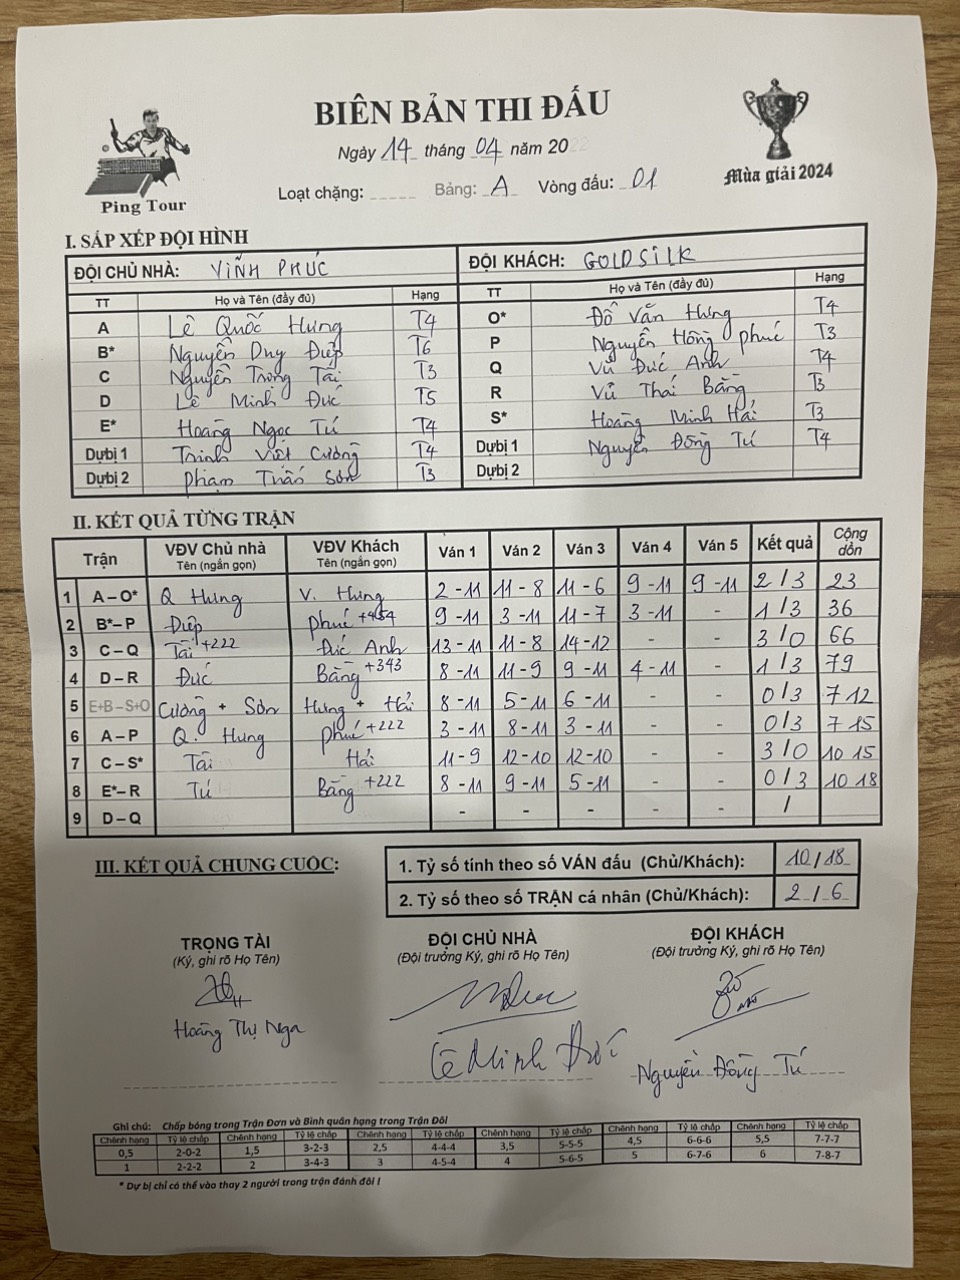 BIÊN BẢN THI ĐẤU
Ngày 14 tháng 04 năm 20
Mùa giải 2024
Ping Tour
Loạt chặng: Bảng: A Vòng đấu: 01
I. SẮP XẾP ĐỘI HÌNH
ĐỘI CHỦ NHÀ: VĨNH PHÚC ĐỘI KHÁCH: GOLDSILK
TT Họ và Tên (đầy đủ) Hạng TT Họ và Tên (đầy đủ) Hạng
A Lê Quốc Hưng T4 O* Đỗ Văn Hưng T4
B* Nguyễn Duy Điệp T6 P Nguyễn Hồng Phúc T3
C Nguyễn Trọng Tài T3 Q Vũ Đức Anh T4
D Lê Minh Đức T5 R Vũ Thái Bằng T3
E* Hoàng Ngọc Tú T4 S* Hoàng Minh Hải T3
Dự bị 1 Trịnh Việt Cường T4 Dự bị 1 Nguyễn Đông Tú T4
Dự bị 2 Phạm Tuấn Sơn T3 Dự bị 2
II. KẾT QUẢ TỪNG TRẬN
Trận VĐV Chủ nhà Tên (ngắn gọn) VĐV Khách Tên (ngắn gọn) Ván 1 Ván 2 Ván 3 Ván 4 Ván 5 Kết quả Cộng dồn
1 A – O* Q Hưng V. Hưng 2 - 11 11 - 8 11 - 6 9 - 11 9 - 11 2 / 3 2 3
2 B* – P Điệp Phúc 9 - 11 3 - 11 11 - 7 3 - 11 - 1 / 3 3 6
3 C – Q Tài +222 Đức Anh 13 - 11 11 - 8 14 - 12 - - 3 / 0 6 6
4 D – R Đức Bằng +343 8 - 11 11 - 9 9 - 11 4 - 11 - 1 / 3 7 9
5 E+B – S+O Cường + Sơn Hưng + Hải 8 - 11 5 - 11 6 - 11 - - 0 / 3 7 12
6 A – P Q. Hưng Phúc +222 3 - 11 8 - 11 3 - 11 - - 0 / 3 7 15
7 C – S* Tài Hải 11 - 9 12 - 10 12 - 10 - - 3 / 0 10 15
8 E* – R Tú Bằng +222 8 - 11 9 - 11 5 - 11 - - 0 / 3 10 18
9 D – Q - - - - - /
III. KẾT QUẢ CHUNG CUỘC:
1. Tỷ số tính theo số VÁN đấu (Chủ/Khách): 10 / 18
2. Tỷ số theo số TRẬN cá nhân (Chủ/Khách): 2 / 6
TRỌNG TÀI ĐỘI CHỦ NHÀ ĐỘI KHÁCH
(Ký, ghi rõ Họ Tên) (Đội trưởng Ký, ghi rõ Họ Tên) (Đội trưởng Ký, ghi rõ Họ Tên)
Hoàng Thị Nga Lê Minh Đức Nguyễn Đông Tú
Ghi chú: Chấp bóng trong Trận Đơn và Bình quân hạng trong Trận Đôi
Chênh hạng Tỷ lệ chấp Chênh hạng Tỷ lệ chấp Chênh hạng Tỷ lệ chấp Chênh hạng Tỷ lệ chấp Chênh hạng Tỷ lệ chấp Chênh hạng Tỷ lệ chấp
0,5 2-0-2 1,5 3-2-3 2,5 4-4-4 3,5 5-5-5 4,5 6-6-6 5,5 7-7-7
1 2-2-2 2 3-4-3 3 4-5-4 4 5-6-5 5 6-7-6 6 7-8-7
* Dự bị chỉ có thể vào thay 2 người trong trận đánh đôi !